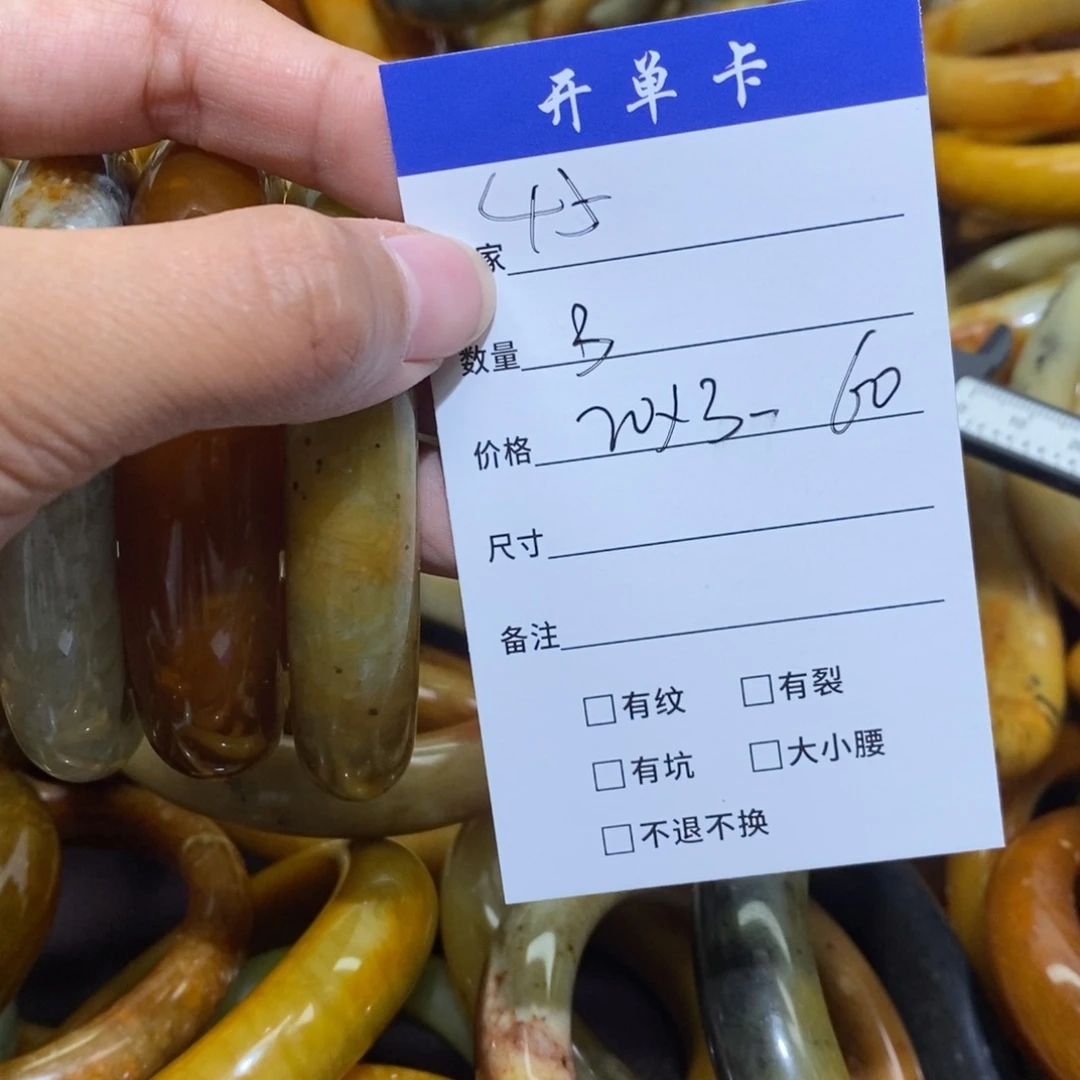 开单卡
家
数量 3
价格 20x3- 60
尺寸
备注
□有纹 □有裂
□有坑 □大小腰
□不退不换